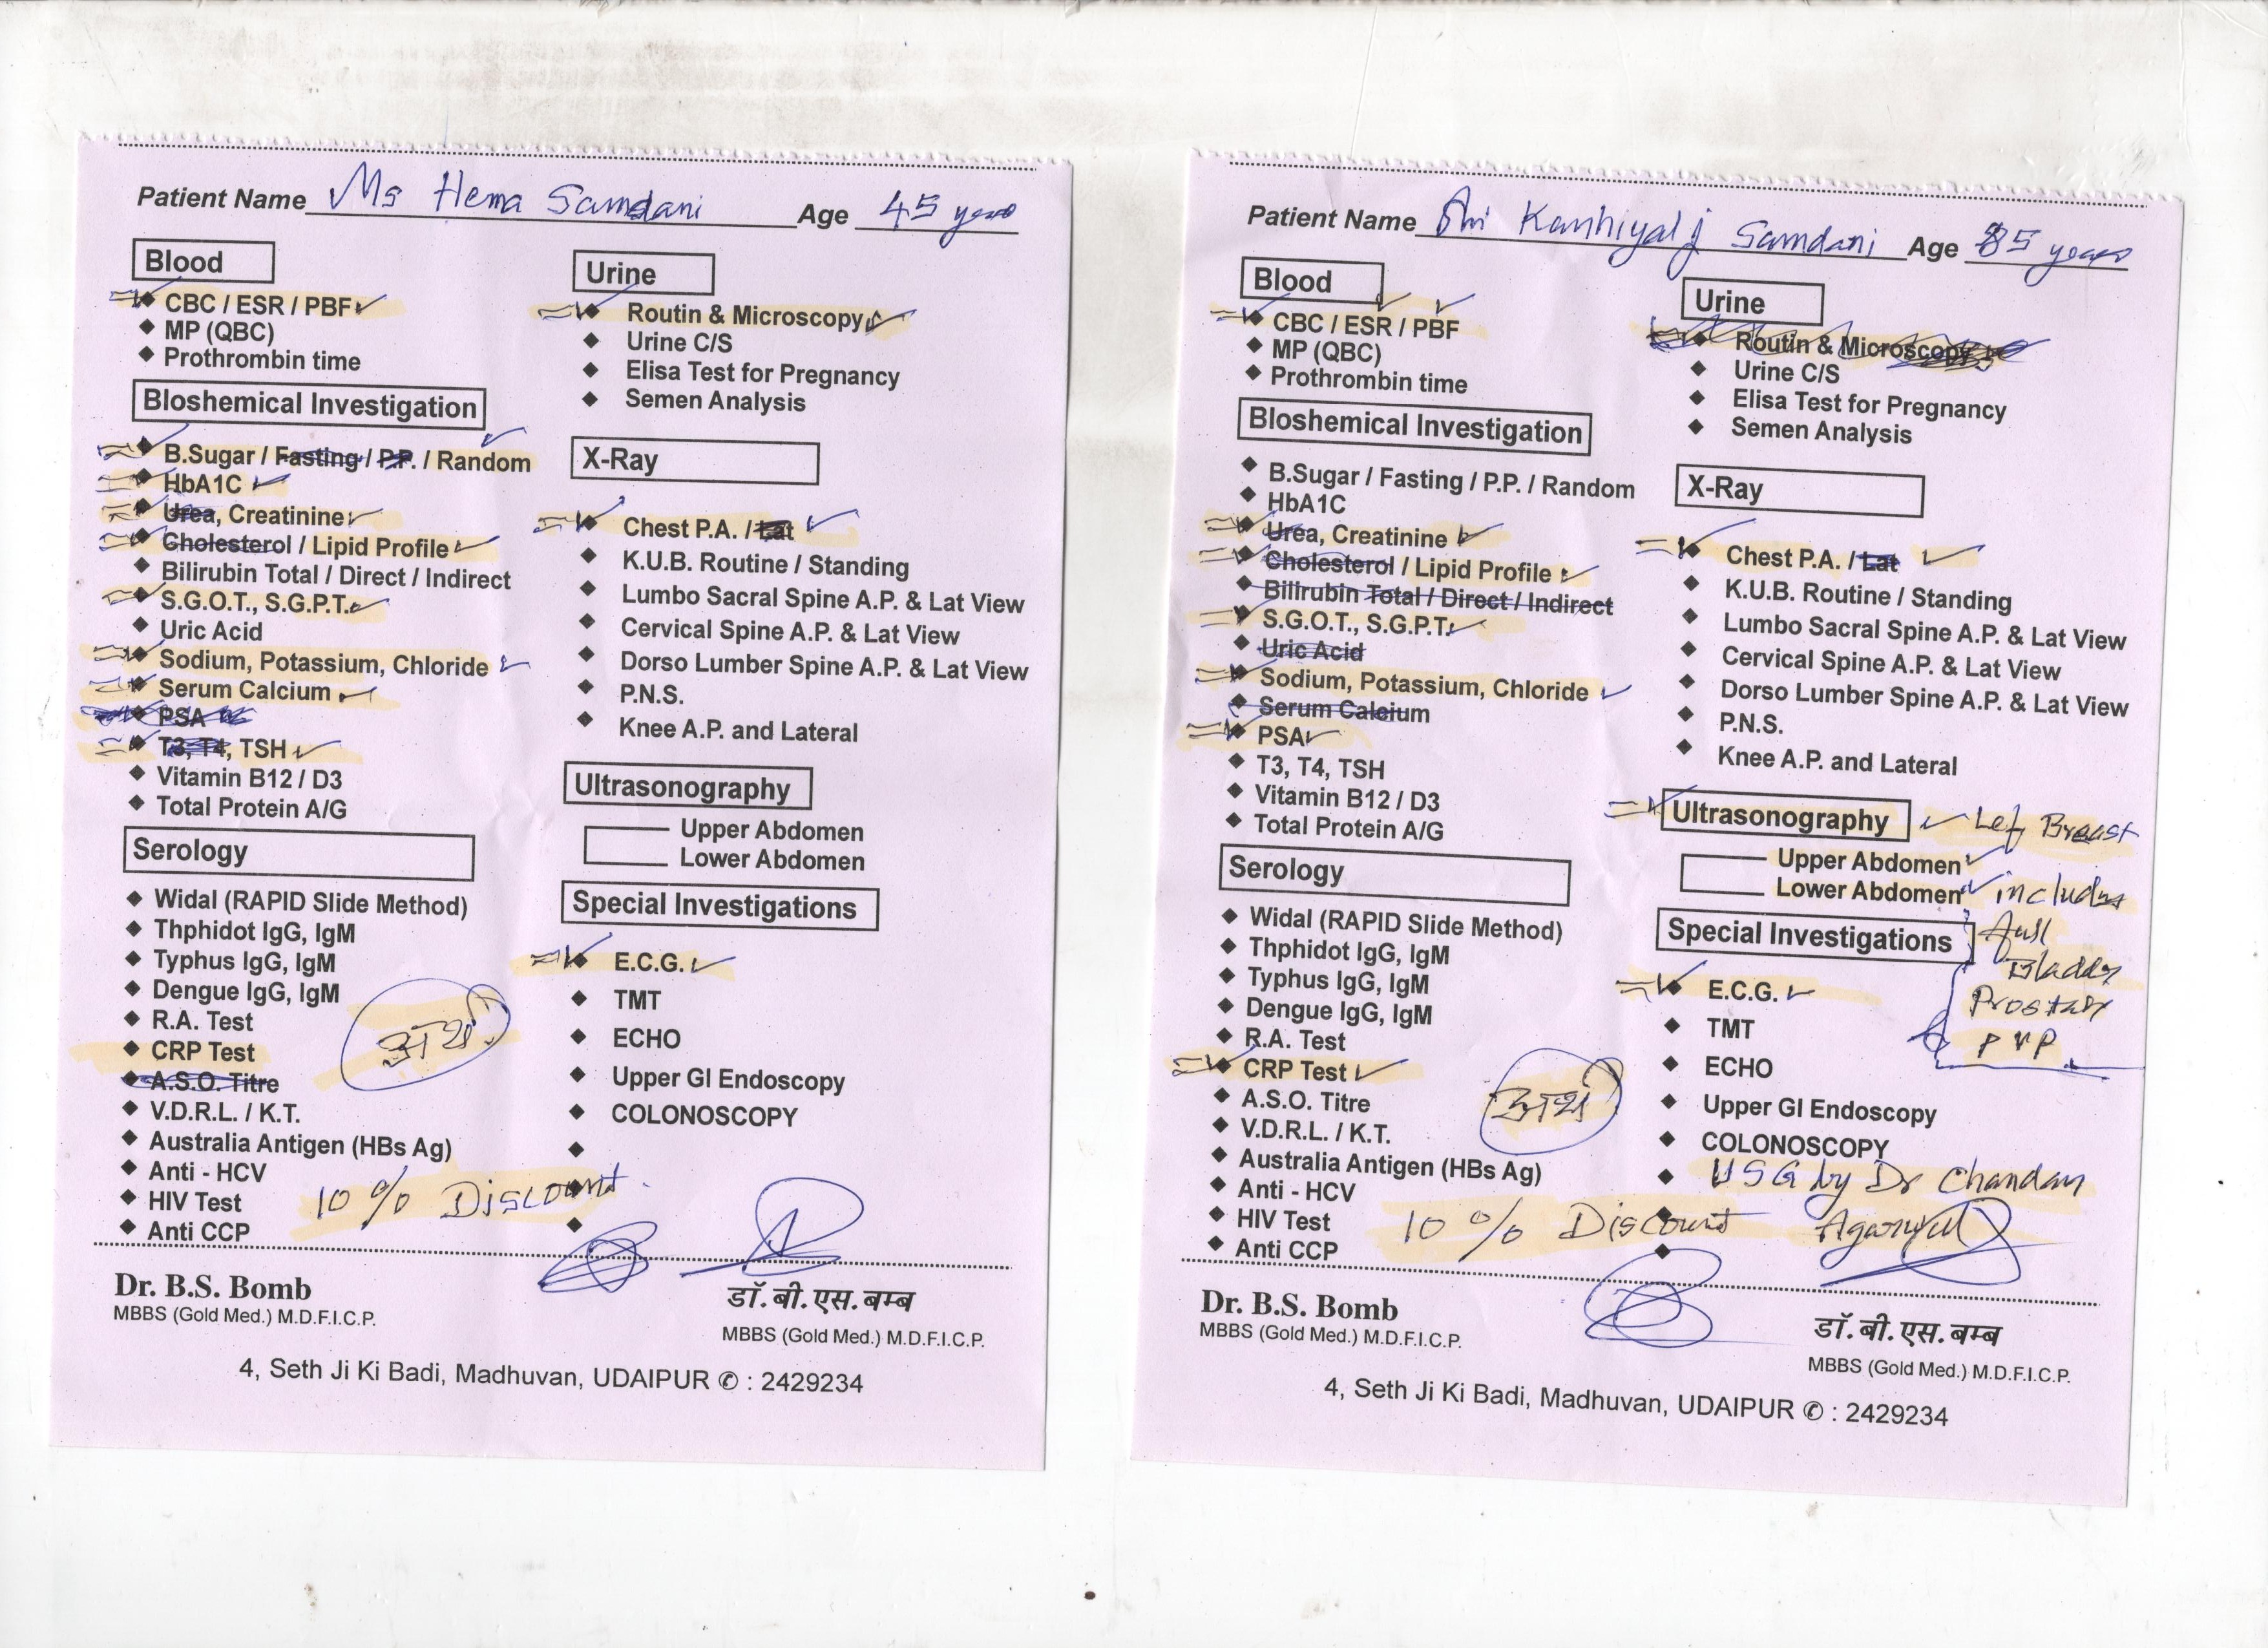 Patient Name Ms Hema Samdani Age 45 years
Blood
CBC / ESR / PBF
MP (QBC)
Prothrombin time
Bloshemical Investigation
B.Sugar / Fasting / P.P. / Random
HbA1C
Urea, Creatinine
Cholesterol / Lipid Profile
Bilirubin Total / Direct / Indirect
S.G.O.T., S.G.P.T.
Uric Acid
Sodium, Potassium, Chloride
Serum Calcium
PSA
T3, T4, TSH
Vitamin B12 / D3
Total Protein A/G
Serology
Widal (RAPID Slide Method)
Thphidot IgG, IgM
Typhus IgG, IgM
Dengue IgG, IgM
R.A. Test
CRP Test
A.S.O. Titre
V.D.R.L. / K.T.
Australia Antigen (HBs Ag)
Anti - HCV
HIV Test
Anti CCP
Urine
Routin & Microscopy
Urine C/S
Elisa Test for Pregnancy
Semen Analysis
X-Ray
Chest P.A. / Lat
K.U.B. Routine / Standing
Lumbo Sacral Spine A.P. & Lat View
Cervical Spine A.P. & Lat View
Dorso Lumber Spine A.P. & Lat View
P.N.S.
Knee A.P. and Lateral
Ultrasonography
Upper Abdomen
Lower Abdomen
Special Investigations
E.C.G.
TMT
ECHO
Upper GI Endoscopy
COLONOSCOPY
10 % Discount
Dr. B.S. Bomb
MBBS (Gold Med.) M.D.F.I.C.P.
डॉ. बी. एस. बम्ब
MBBS (Gold Med.) M.D.F.I.C.P.
4, Seth Ji Ki Badi, Madhuvan, UDAIPUR ✆ : 2429234
Patient Name Shri Kanhiyalal j Samdani Age 85 years
Blood
CBC / ESR / PBF
MP (QBC)
Prothrombin time
Bloshemical Investigation
B.Sugar / Fasting / P.P. / Random
HbA1C
Urea, Creatinine
Cholesterol / Lipid Profile
Bilirubin Total / Direct / Indirect
S.G.O.T., S.G.P.T.
Uric Acid
Sodium, Potassium, Chloride
Serum Calcium
PSA
T3, T4, TSH
Vitamin B12 / D3
Total Protein A/G
Serology
Widal (RAPID Slide Method)
Thphidot IgG, IgM
Typhus IgG, IgM
Dengue IgG, IgM
R.A. Test
CRP Test
A.S.O. Titre
V.D.R.L. / K.T.
Australia Antigen (HBs Ag)
Anti - HCV
HIV Test
Anti CCP
Urine
Routin & Microscopy
Urine C/S
Elisa Test for Pregnancy
Semen Analysis
X-Ray
Chest P.A. / Lat
K.U.B. Routine / Standing
Lumbo Sacral Spine A.P. & Lat View
Cervical Spine A.P. & Lat View
Dorso Lumber Spine A.P. & Lat View
P.N.S.
Knee A.P. and Lateral
Ultrasonography Left Breast
Upper Abdomen
Lower Abdomen includes
full
Bladder
Prostate
PVP
Special Investigations
E.C.G.
TMT
ECHO
Upper GI Endoscopy
COLONOSCOPY
USG by Dr Chandan
Agarwal
10 % Discount
Dr. B.S. Bomb
MBBS (Gold Med.) M.D.F.I.C.P.
डॉ. बी. एस. बम्ब
MBBS (Gold Med.) M.D.F.I.C.P.
4, Seth Ji Ki Badi, Madhuvan, UDAIPUR ✆ : 2429234